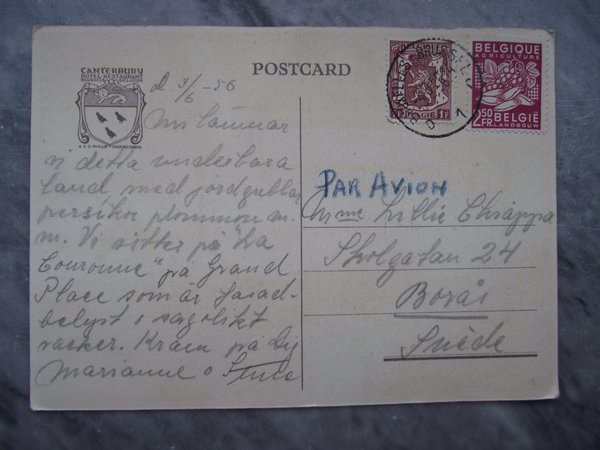 CANTERBURY
HOTEL RESTAURANT
POSTCARD
d 3/6 -56
Nu lämnar
vi detta underbara
land med jordgubbar
persikor plommon m.
m. Vi sitter på "La
Couronne" på Grand
Place som är fasad-
belyst o sagolikt
vacker. Kram på Dig
Marianne o
BELGIQUE
AGRICULTURE
2.50 BELGIË
FR. LANDBOUW
1F
PAR AVION
Mme Lillie Chiappa
Skolgatan 24
Borås
Suède